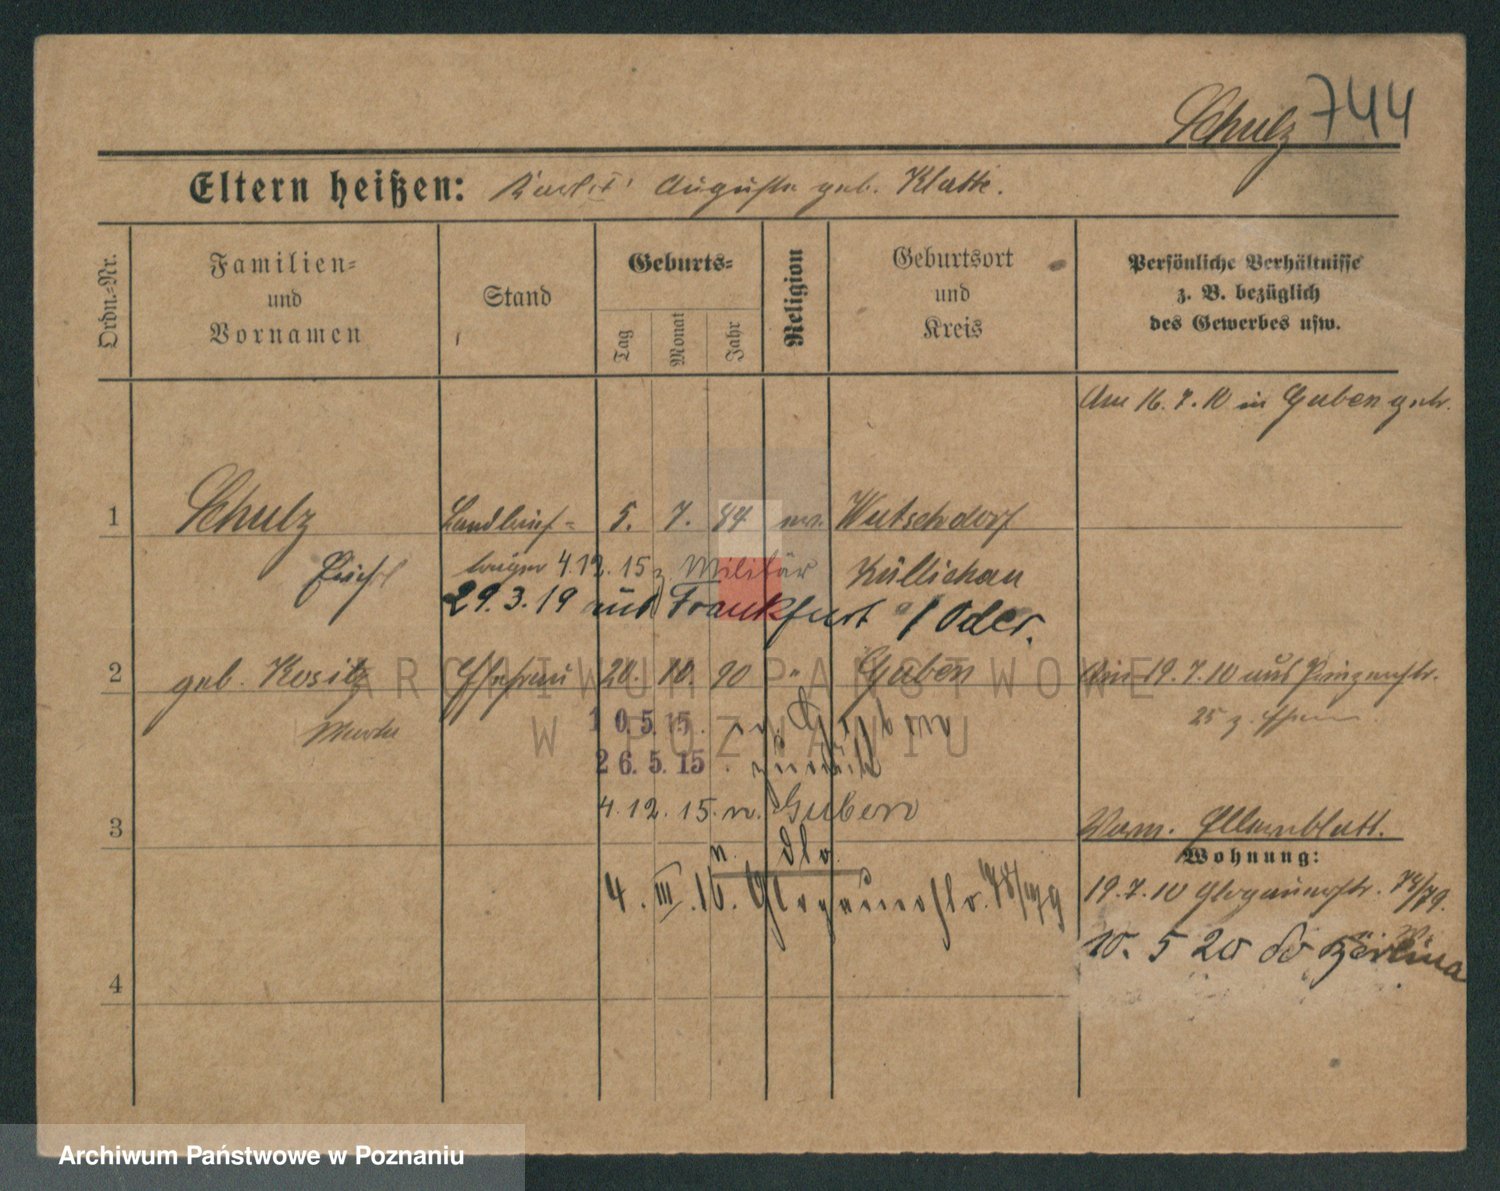 Schulz 744
Eltern heißen: Auguste geb. Klatte.
Ordn.-Nr.
Familien-
und
Vornamen
Stand
Geburts-
Tag
Monat
Jahr
Religion
Geburtsort
und
Kreis
Persönliche Verhältnisse
z. B. bezüglich
des Gewerbes usw.
Am 16.7.10 in Guben getr.
1 Schulz Landbrief- 5. 7. 84 ev. Wutschdorf
träger 4.12.15 z. Militär Züllichau
29.3.19 aus Frankfurt a/Oder.
2 geb. Kositz Ehefrau 20. 10. 90 " Guben Am 19.7.10 aus Prinzenstr.
25 z.
10.5.15. n. Guben
26.5.15. zurück
4.12.15. n. Guben
3
Verm. Elternblatt.
Wohnung:
4. III. 16. Glogauerstr. 78/79
19.7.10 Glogauerstr. 78/79.
10. 5 20
4
ARCHIWUM PAŃSTWOWE
W POZNANIU
Archiwum Państwowe w Poznaniu